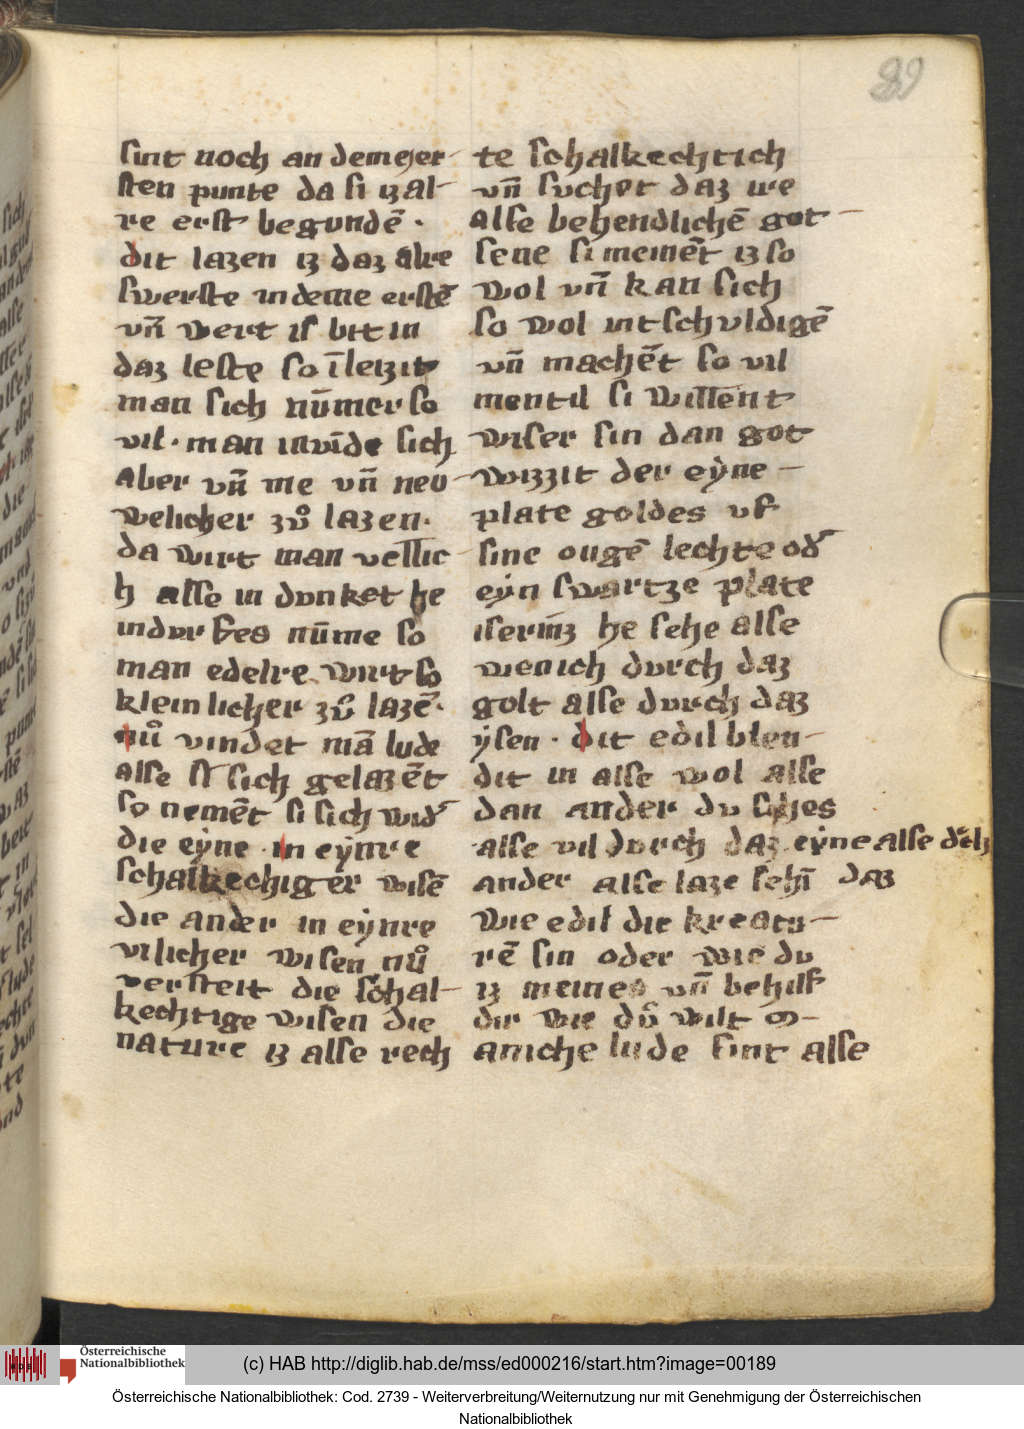 89
sint noch an demejer
sten punte da si izal-
re erst begundē ·
dit lazen iz daz alre
swerste indeme erstē
vn̄ wert is bit in
daz leste so īleizit
man sich nūmer so
vil · man invīde sich
aber vn̄ me vn̄ neu-
welicher zuͦ lazen·
da wirt man vellic
h alse in dunket he
indurfes nūme so
man edelre wirt so
kleinlicher zuͦ lazē·
nuͦ vindet mā lude
alse si sich gelazēt
so nemēt si sich wid͛
die eẏne · in eẏnre
schalkechiger wisē
die ander in eẏnre
vilicher wisen nuͦ
versteit die schal-
kechtige wisen die
nature iz alse rech
te schalkechtich
vn̄ suchet daz ire
alse behendlichē got-
sene si meinēt iz so
wol vn̄ kan sich
so wol intschuldigē
vn̄ machēt so vil
mentil si willent
wiser sin dan got
wizzit der eẏne –
plate goldes uf
sine ougē lechte od͛
eẏn swartze plate
iserinz he sehe alse
wenich durch daz
golt alse durch daz
ẏsen · dit edil blen-
dit in alse wol alse
dan ander du sihes
alse vil durch daz eẏne alse d͛ch
ander alse laze sehī daz
wie edil die kreatu-
rē sin oder wie du
iz meines vn̄ behilf
dir wie du wilt m-
aniche lude sint alse
Österreichische
Nationalbibliothek
(c) HAB http://diglib.hab.de/mss/ed000216/start.htm?image=00189
Österreichische Nationalbibliothek: Cod. 2739 - Weiterverbreitung/Weiternutzung nur mit Genehmigung der Österreichischen
Nationalbibliothek